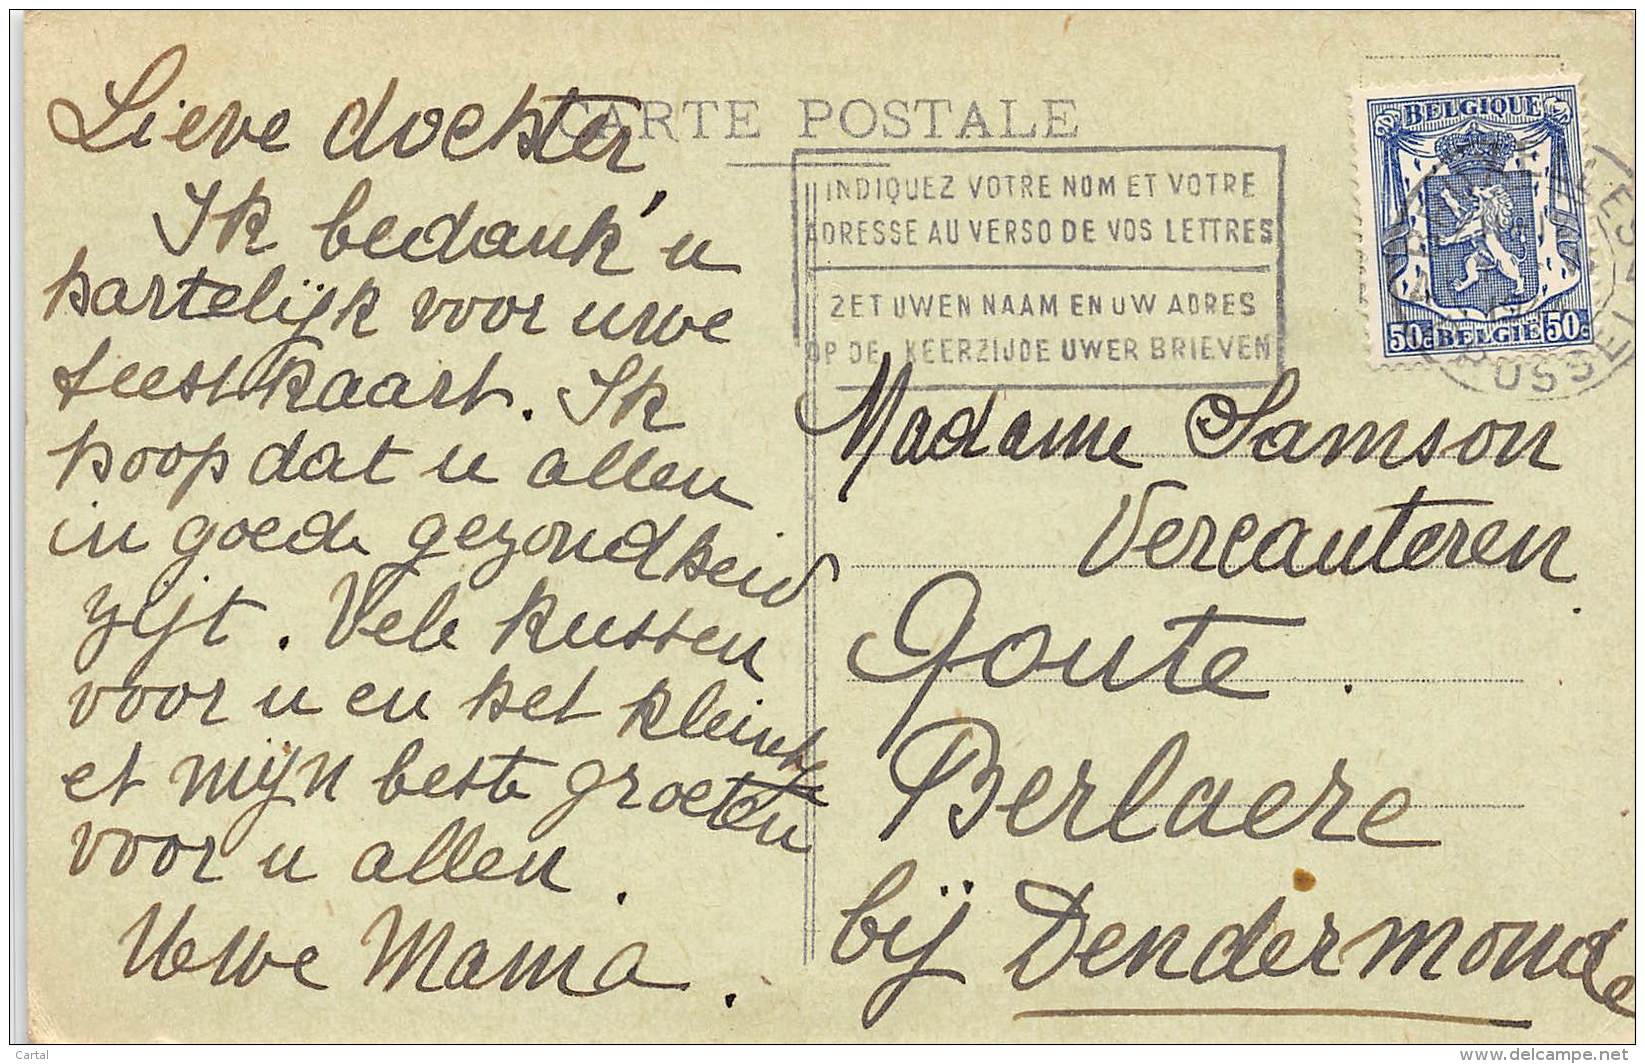 CARTE POSTALE
Lieve dochter,
Ik bedank u
hartelijk voor uwe
feestkaart. Ik
hoop dat u allen
in goede gezondheid
zijt. Vele kussen
voor u en het kleintje
et mijn beste groeten
voor u allen.
Uwe Mama.
INDIQUEZ VOTRE NOM ET VOTRE
ADRESSE AU VERSO DE VOS LETTRES
ZET UWEN NAAM EN UW ADRES
OP DE KEERZIJDE UWER BRIEVEN
BELGIQUE
50c BELGIE 50c
Madame Samson
Vercauteren
Goute.
Berlaere
bij Dendermonde
Cartal
www.delcampe.net